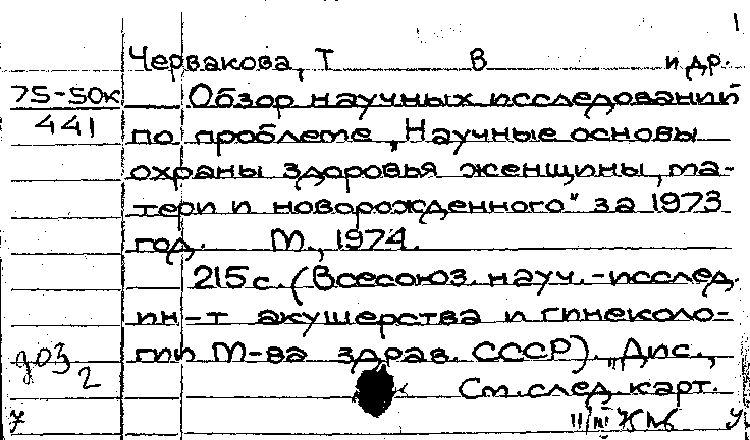 1
Червакова, Т В и др.
75-50к
441
Обзор научных исследований
по проблеме „Научные основы
охраны здоровья женщины, ма-
тери и новорожденного" за 1973
год. М., 1974.
215 с. (Всесоюз. науч.-исслед.
ин-т акушерства и гинеколо-
гии М-ва здрав. СССР). „Дис.,
См. след. карт.
2
7